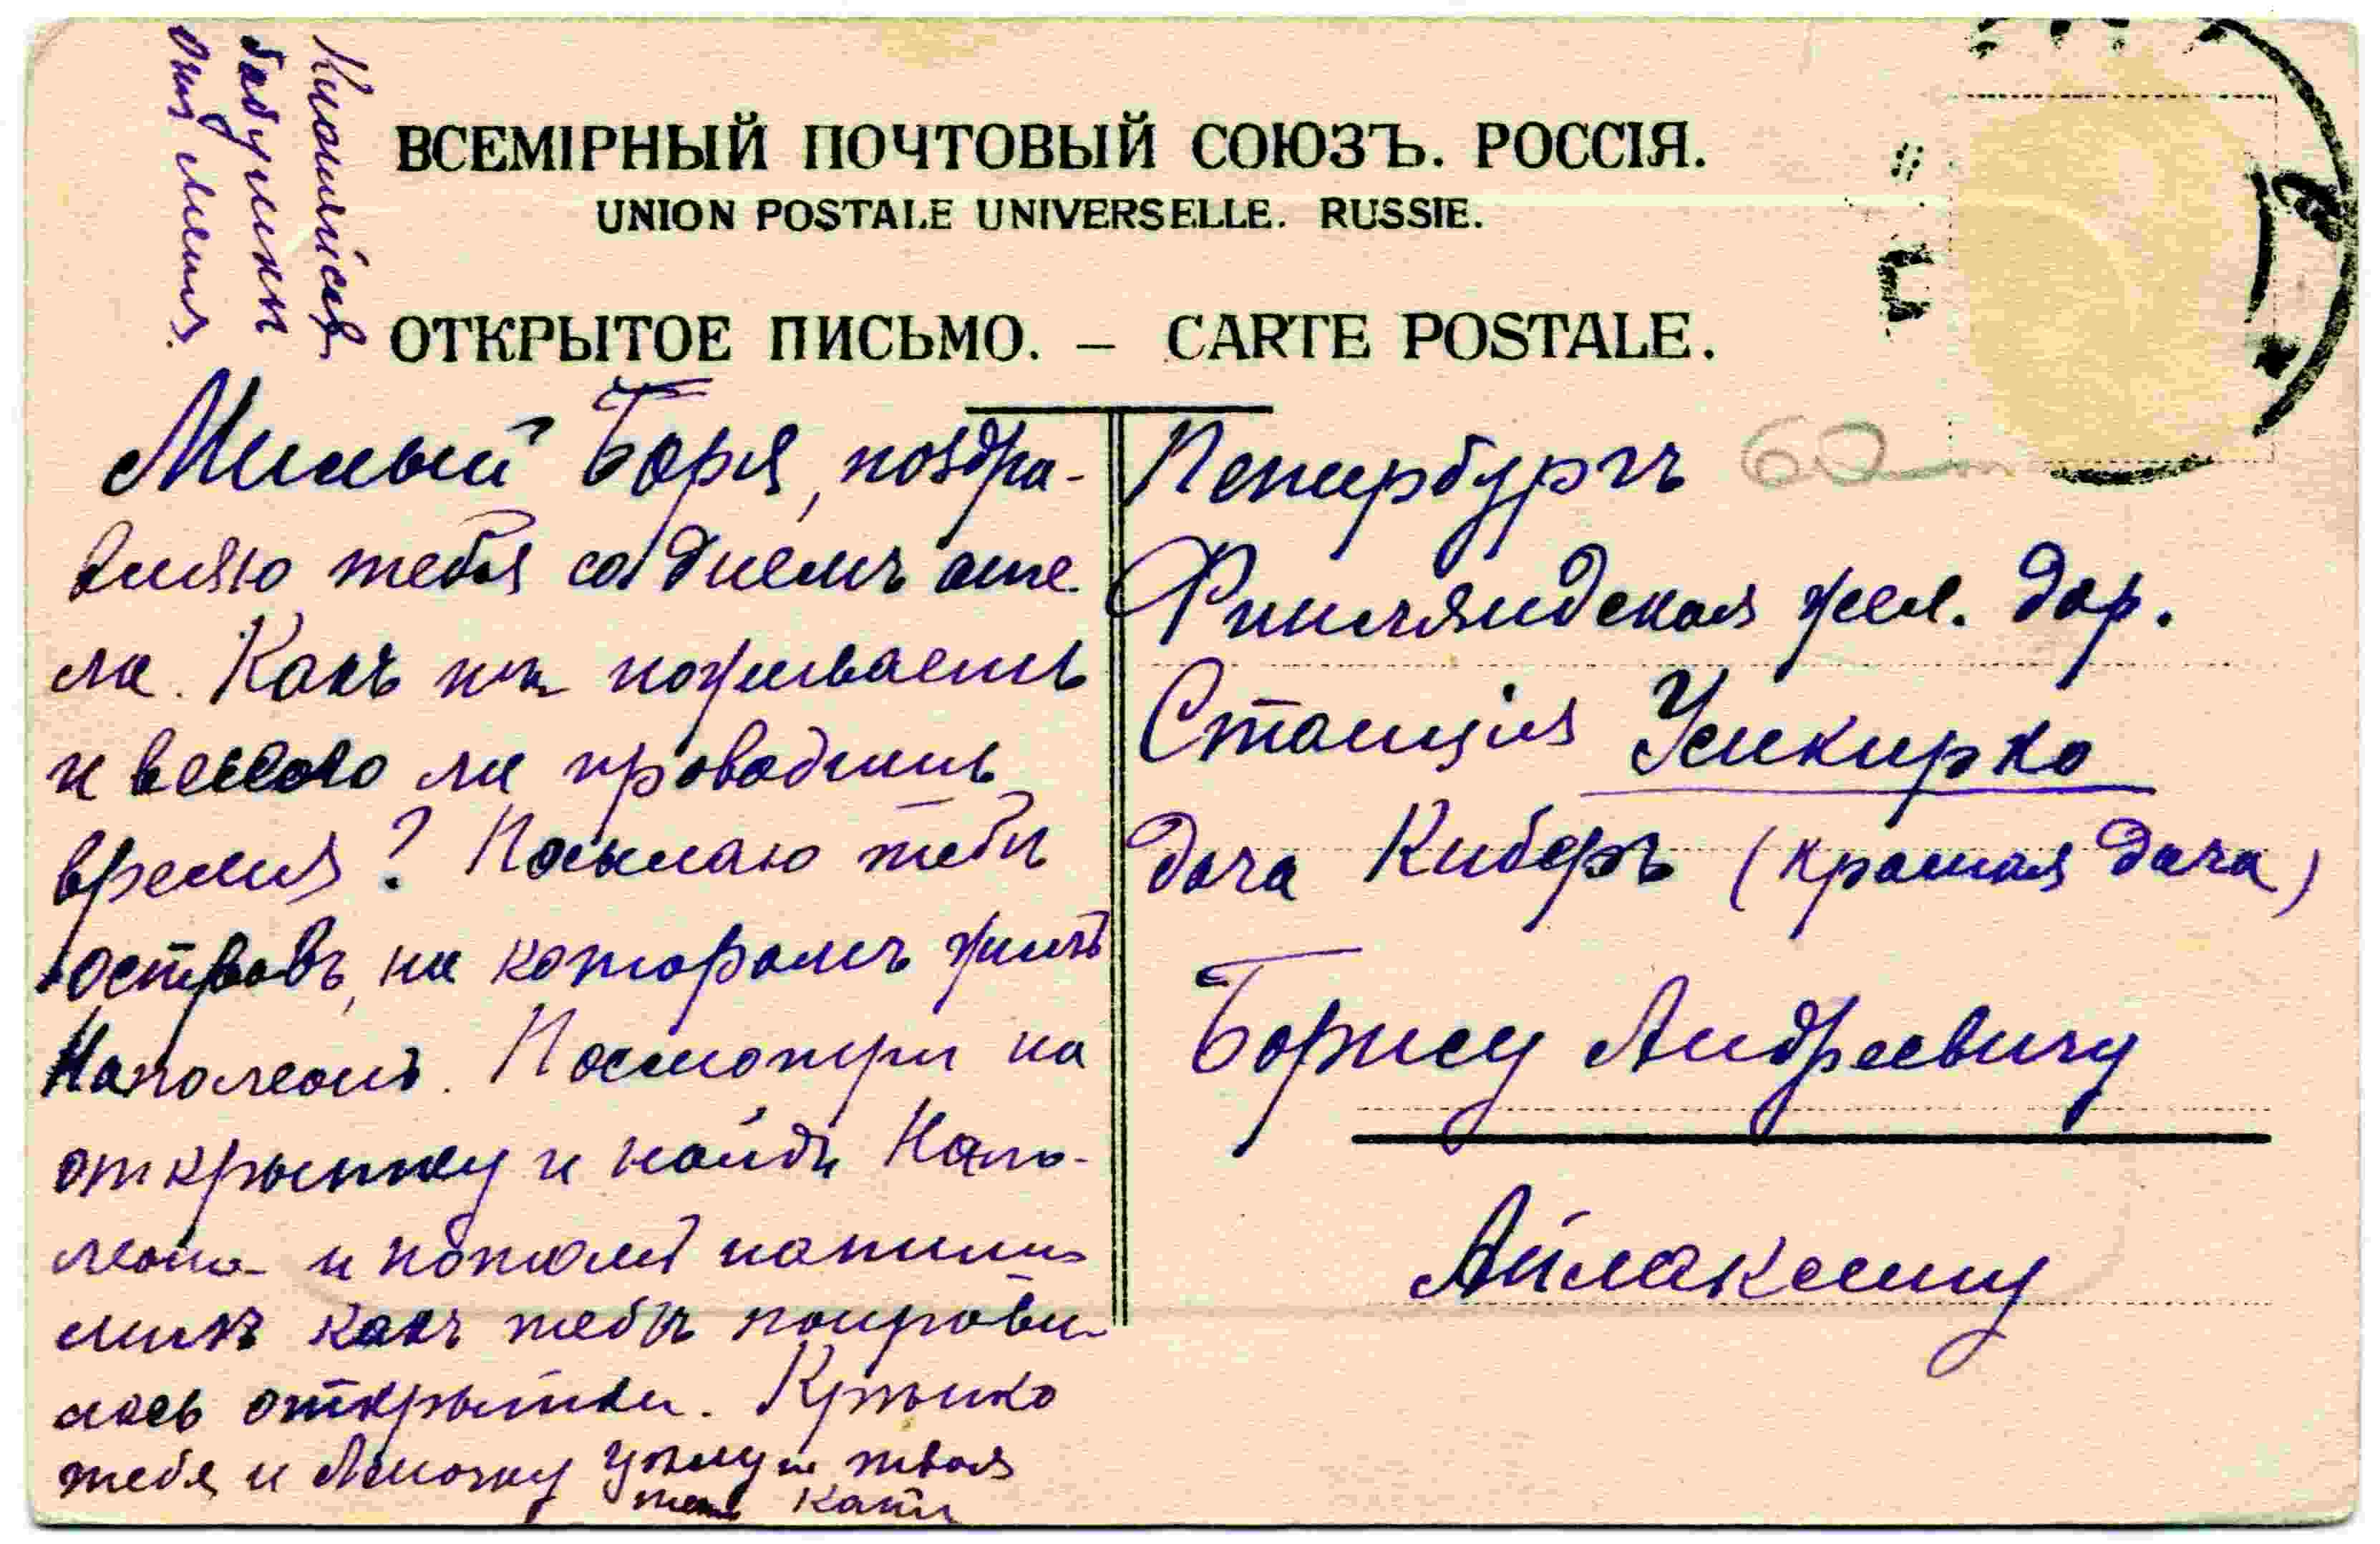 Кланяйся
бабушки
отъ меня.
ВСЕМІРНЫЙ ПОЧТОВЫЙ СОЮЗЪ. РОССІЯ.
UNION POSTALE UNIVERSELLE. RUSSIE.
ОТКРЫТОЕ ПИСЬМО. — CARTE POSTALE.
Милый Боря, поздра-
вляю тебя со днемъ анге-
ла. Какъ ты поживаешь
и весело ли проводишь
время? Посылаю тебѣ
островъ, на которомъ жилъ
Наполеонъ. Посмотри на
открытку и найди Напо-
леона и потомъ напиши
мнѣ какъ тебѣ понрави-
лась открытка. Крѣпко
тебя и Лилочку цѣлую твоя
тетя Катя
Петербургъ
60
Финляндская жел. дор.
Станція Усикирко
дача Киберъ (красная дача)
Борису Андреевичу